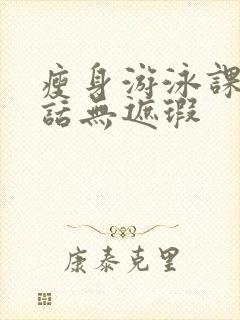 瘦身游泳課
話無遮瑕
康泰克里